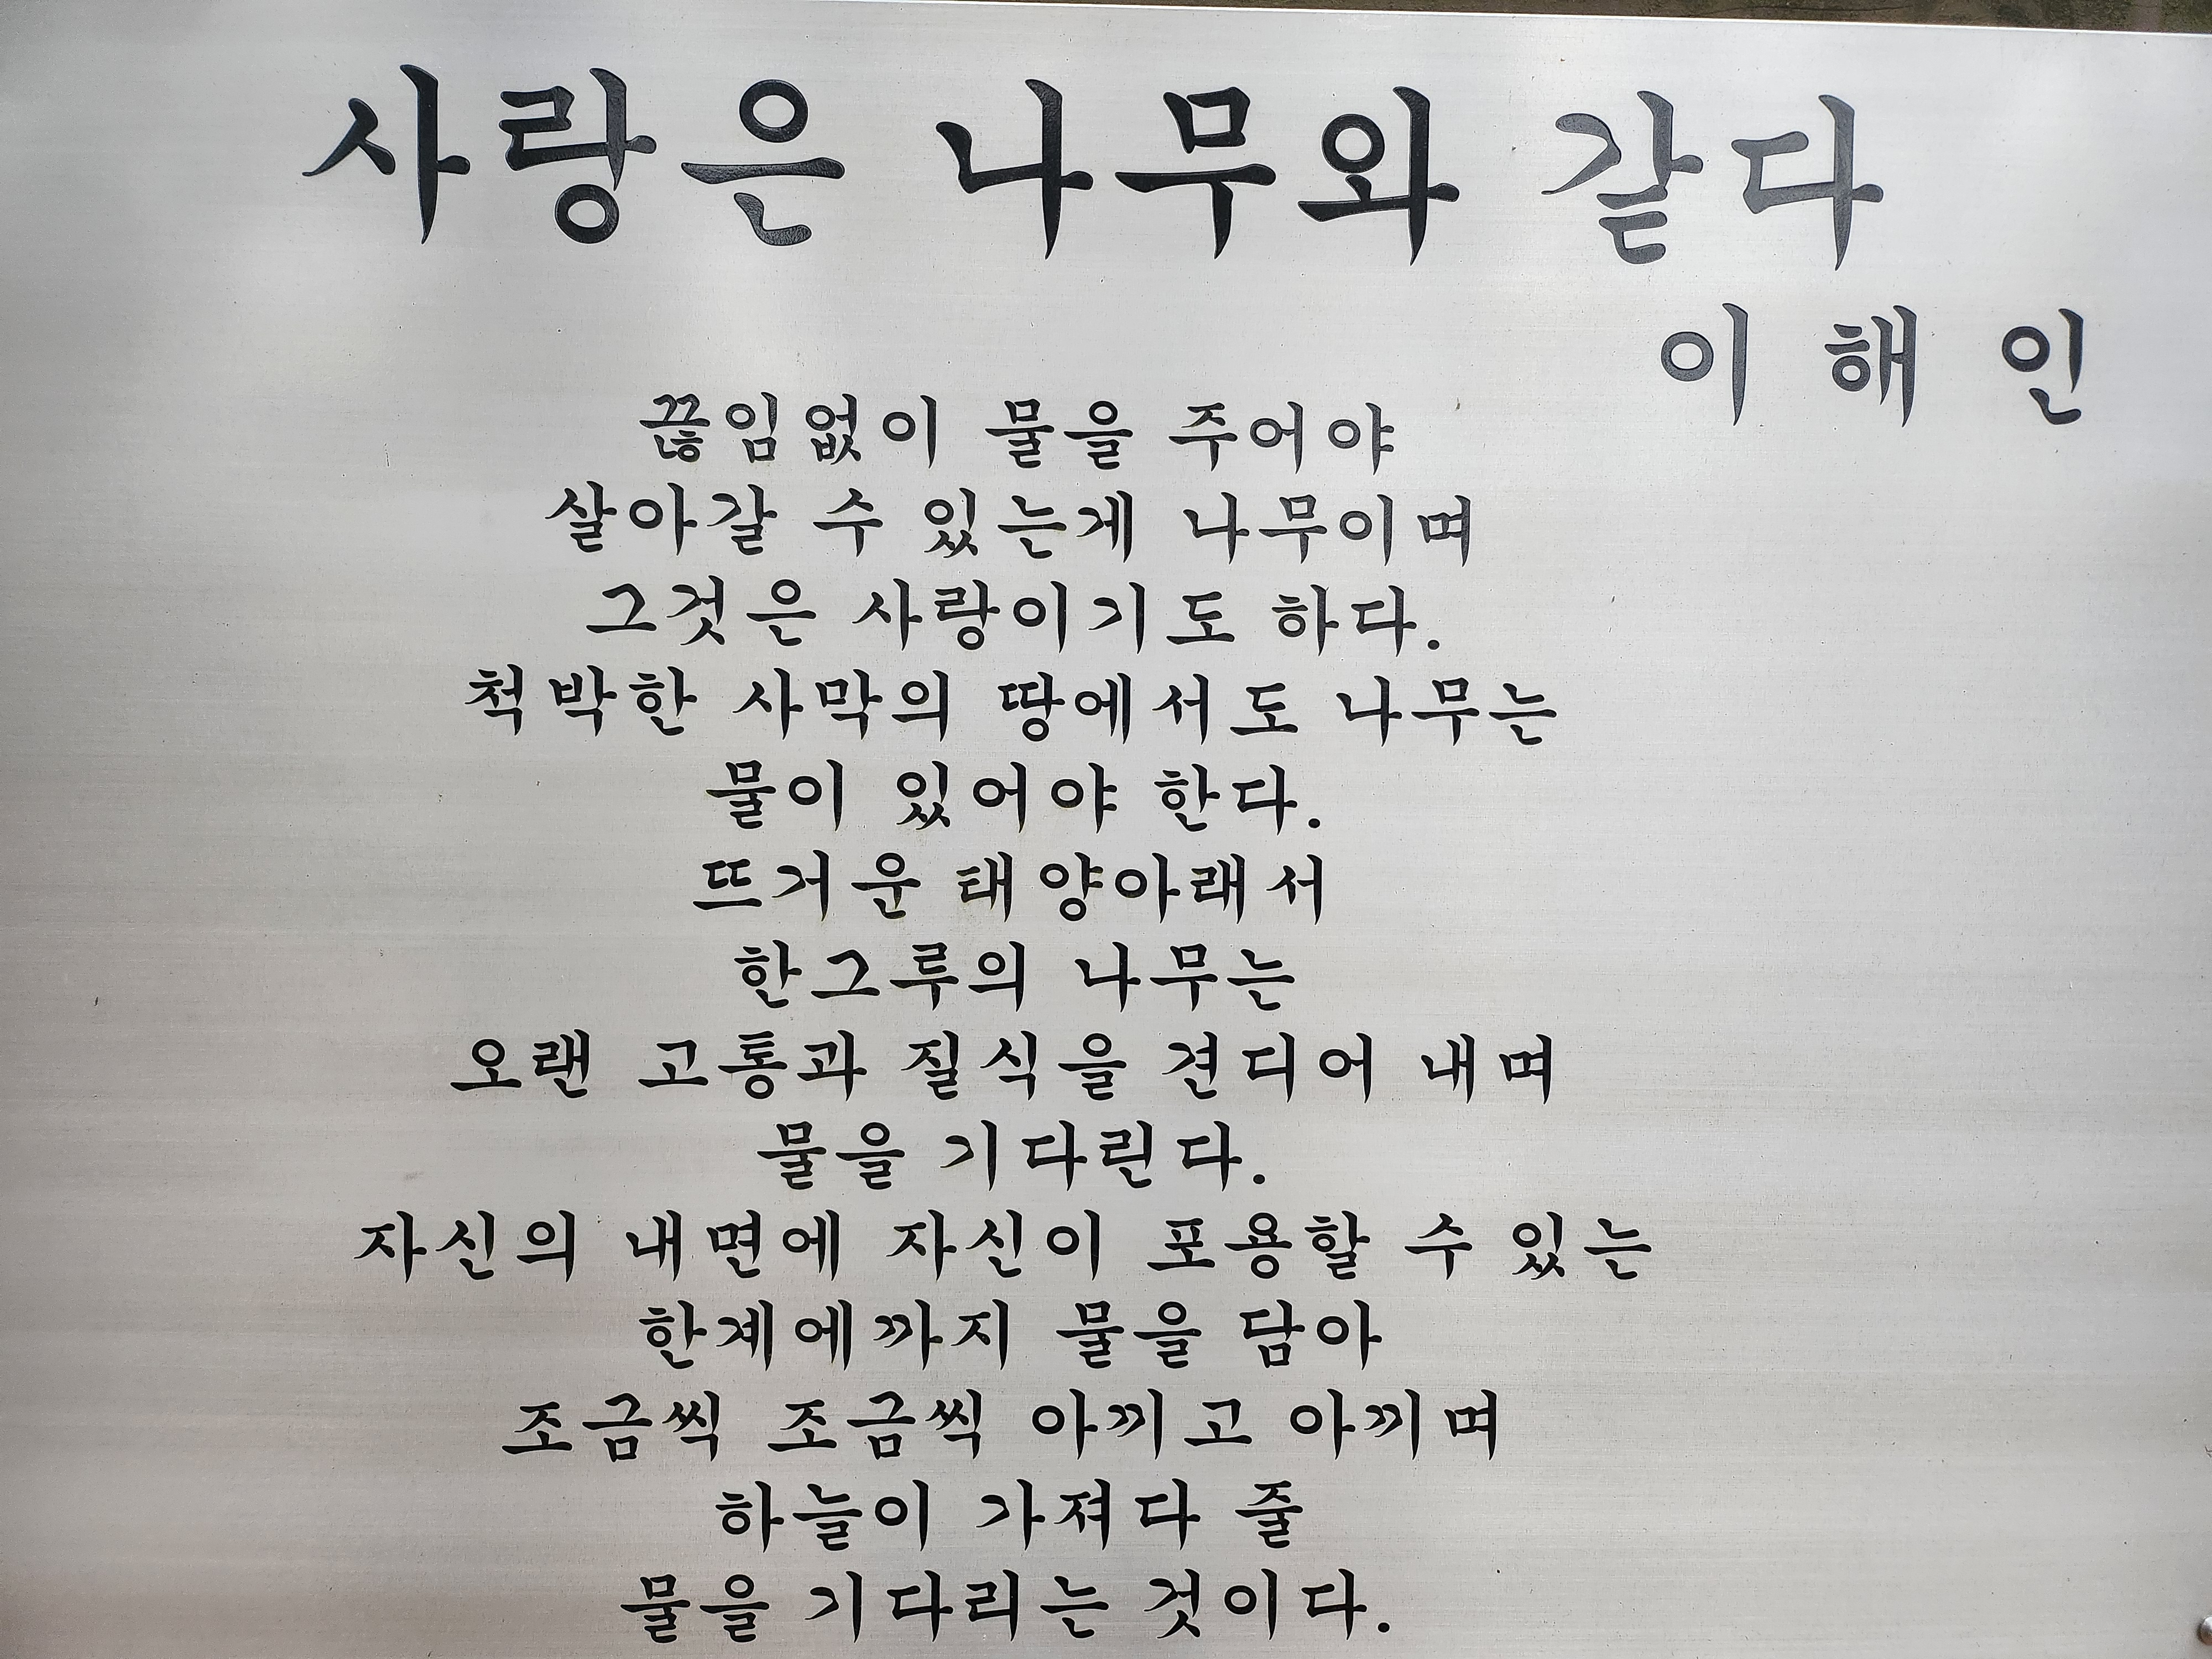 사랑은 나무와 같다
이 해 인
끊임없이 물을 주어야
살아갈 수 있는게 나무이며
그것은 사랑이기도 하다.
척박한 사막의 땅에서도 나무는
물이 있어야 한다.
뜨거운 태양아래서
한그루의 나무는
오랜 고통과 질식을 견디어 내며
물을 기다린다.
자신의 내면에 자신이 포용할 수 있는
한계에까지 물을 담아
조금씩 조금씩 아끼고 아끼며
하늘이 가져다 줄
물을 기다리는 것이다.